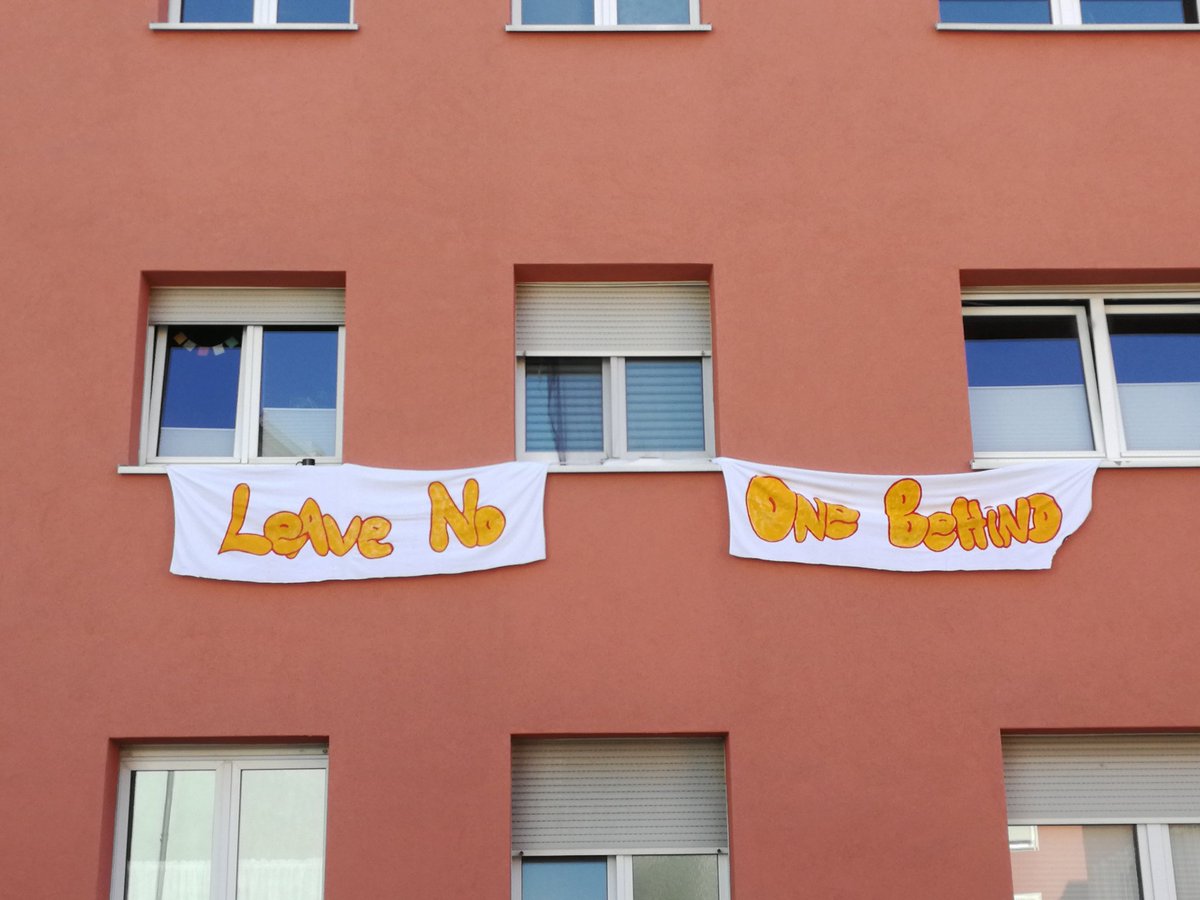 Leave No
One Behind